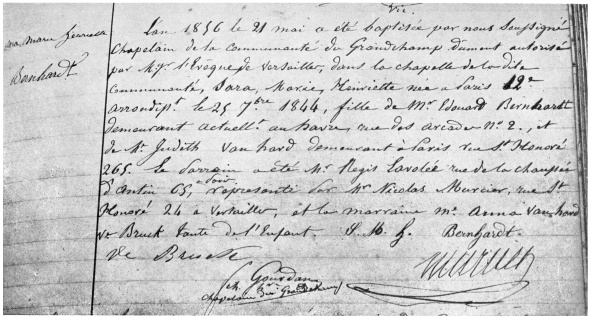 Sara Marie Henriette
Bernhardt
L'an 1856 le 21 mai a été baptisée par nous soussigné
Chapelain de la Communauté du Grandchamp dument autorisé
par Mgr l'Evêque de Versailles, dans la chapelle de la dite
Communauté, Sara, Marie, Henriette née à Paris 12e
arrondisst. le 25 7bre 1844, fille de Mr Edouard Bernhardt
demeurant actuellt. au havre, rue des arcades No 2., et
de Me Judith Van hard demeurant à Paris rue St Honoré
265. Le Parrain a été Mr Regis Lavolée rue de la chaussée
d'antin 65, à Paris, représenté par Mr Nicolas Murcier, rue St
Honoré 24 à Versailles, et la marraine me Anna Van hard
ve Bruck tante de l'Enfant. S. M. h. Bernhardt.
Ve Bruck
Murcier
ch. Gourdan
chapelain du Grandchamp